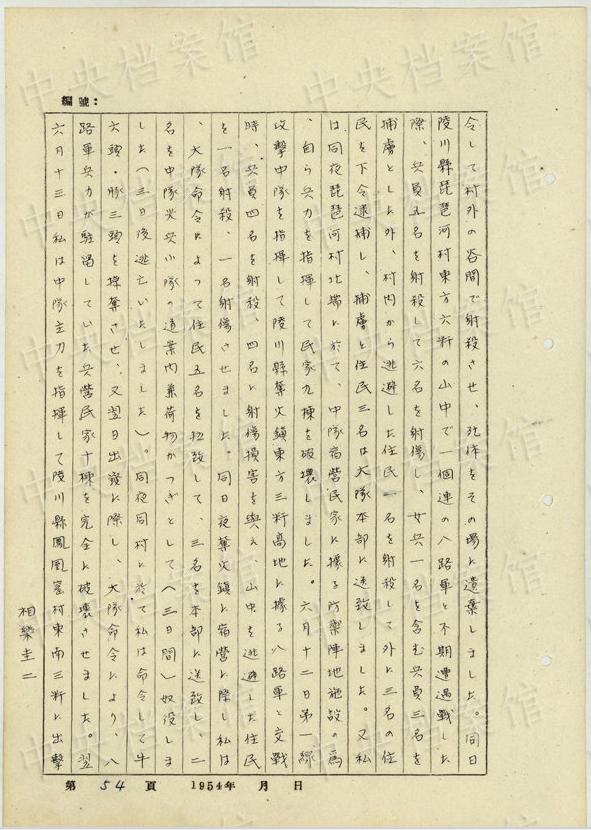 編號：
令して村外の谷間で射殺させ、死体をその場に遺棄しました。同日
陵川縣琵琶河村東方六粁の山中で一個連の八路軍と不期遭遇戦した
際、兵員五名を射殺して六名を射傷し、女兵一名を含む兵員三名を
捕虜とした外、村内から逃避した住民一名を射殺して外に三名の住
民を下令逮捕し、捕虜と住民三名は大隊本部に送致しました。又私
は同夜琵琶河村北端に於て、中隊宿営民家に據る防禦陣地施設の為
、自ら兵力を指揮して民家九棟を破壊しました。六月十二日第一線
攻撃中隊を指揮して陵川縣奪火鎮東方三粁高地に據る八路軍と交戦
時、兵員四名を射殺、四名に射傷損害を與え、山中を逃避した住民
を一名射殺、一名射傷させました。同日夜奪火鎮に宿営に際し私は
、大隊命令によって住民五名を拉致して、三名を本部に送致し、二
名を中隊炊兵小隊の道案内兼荷物かつぎとして（三日間）奴役しま
した（三日後逃亡いたしました）。同夜同村に於て私は命令して牛
六頭・豚三頭を掠奪させ、又翌日出発に際し、大隊命令により、八
路軍兵力が駐留していた兵営民家十棟を完全に破壊させました。翌
六月十三日私は中隊主力を指揮して陵川縣鳳凰窰村東南三粁に出撃
相樂圭二
第 54 頁 1954年 月 日
中央档案馆